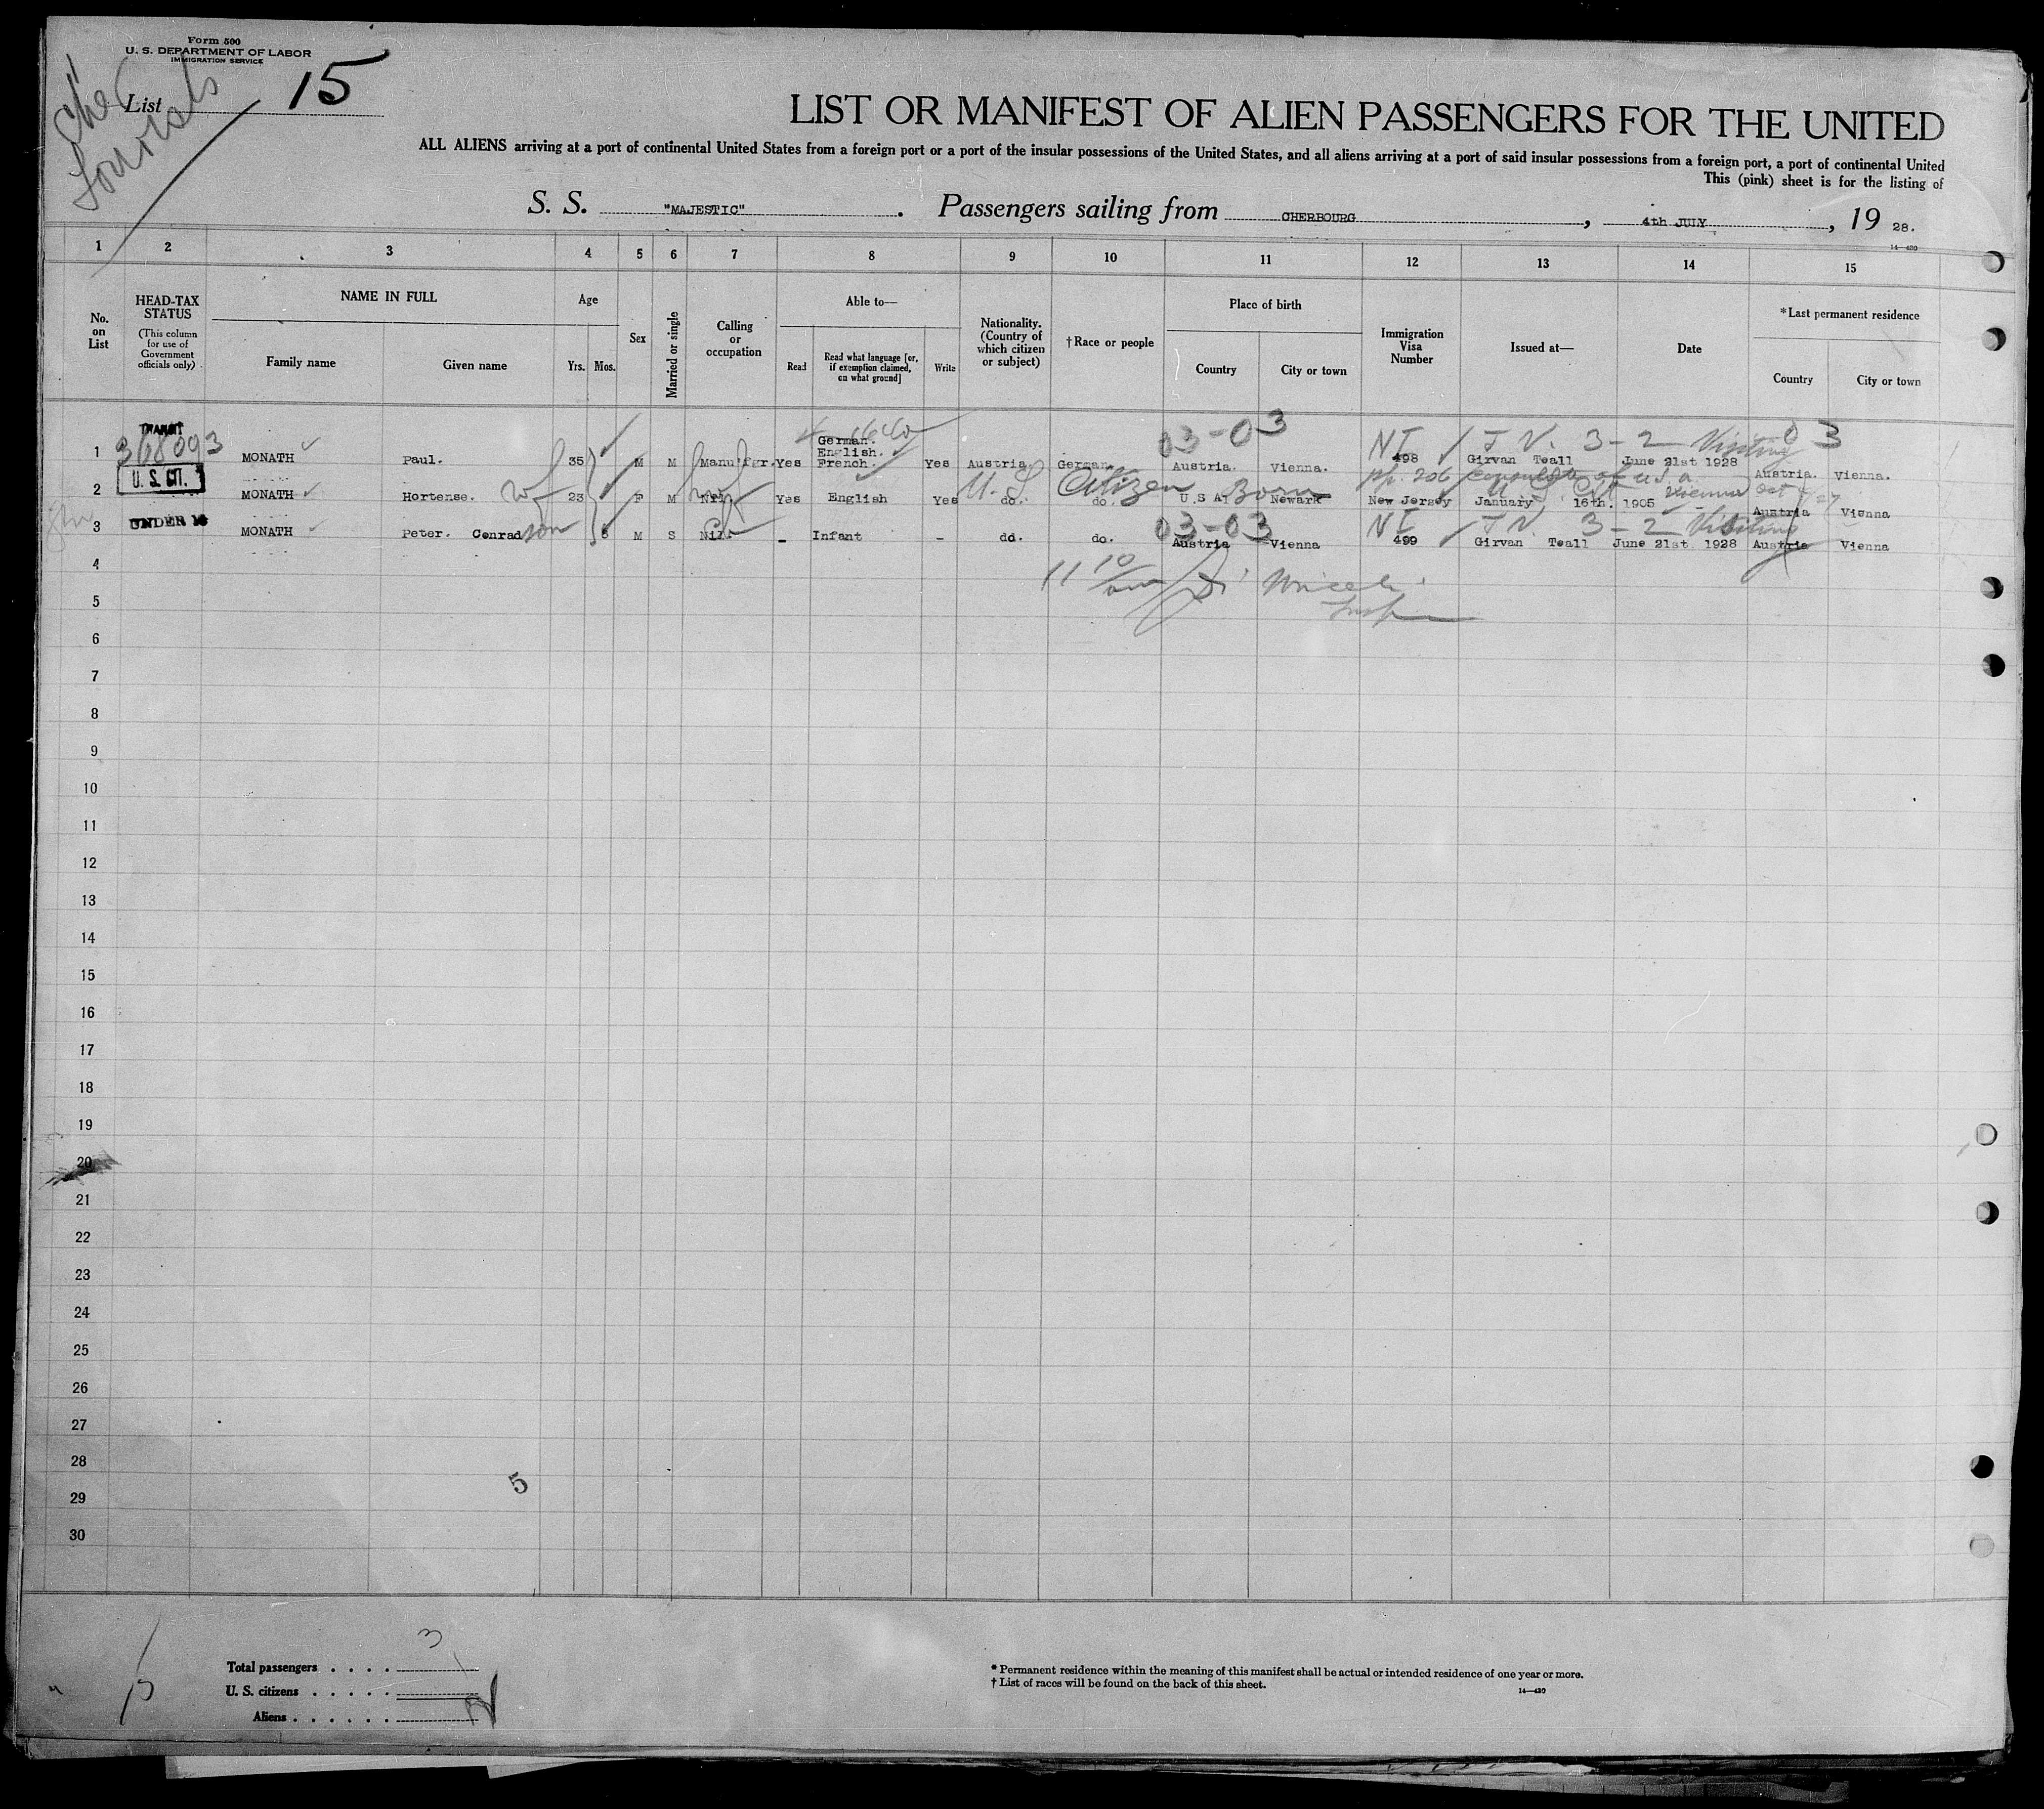 Form 500
U. S. DEPARTMENT OF LABOR
IMMIGRATION SERVICE
List 15
LIST OR MANIFEST OF ALIEN PASSENGERS FOR THE UNITED
ALL ALIENS arriving at a port of continental United States from a foreign port or a port of the insular possessions of the United States, and all aliens arriving at a port of said insular possessions from a foreign port, a port of continental United
This (pink) sheet is for the listing of
S. S. "MAJESTIC". Passengers sailing from CHERBOURG, 4th JULY, 19 28.
14—430
1 2 3 4 5 6 7 8 9 10 11 12 13 14 15
No. on List
HEAD-TAX STATUS
(This column for use of Government officials only)
NAME IN FULL
Family name Given name
Age
Yrs. Mos.
Sex
Married or single
Calling or occupation
Able to—
Read
Read what language [or, if exemption claimed, on what ground]
Write
Nationality. (Country of which citizen or subject)
† Race or people
Place of birth
Country City or town
Immigration Visa Number
Issued at—
Date
*Last permanent residence
Country City or town
TRANSIT
368093
03-03 NI T V. 3-2 Visiting 03
German.
English.
1 MONATH Paul. 35 M M Manu'fgr. Yes French. Yes Austria. German. Austria. Vienna. 498 Girvan Teall June 21st 1928 Austria. Vienna.
U. S. CIT.
U. S. Citizen Born
2 MONATH Hortense. wf 23 F M Nil Yes English Yes do. do. U S A. Newark New Jersey January 16th. 1905 Austria Vienna
UNDER 16
03-03 NI T V. 3-2 Visiting
3 MONATH Peter. Conrad son 6 M S Nil. - Infant - do. do. Austria Vienna 499 Girvan Teall June 21st 1928 Austria Vienna
4
5
6
7
8
9
10
11
12
13
14
15
16
17
18
19
20
21
22
23
24
25
26
27
28
29
30
5
Total passengers . . . . 3
U. S. citizens . . . . .
Aliens . . . . . .
* Permanent residence within the meaning of this manifest shall be actual or intended residence of one year or more.
† List of races will be found on the back of this sheet.
14—430